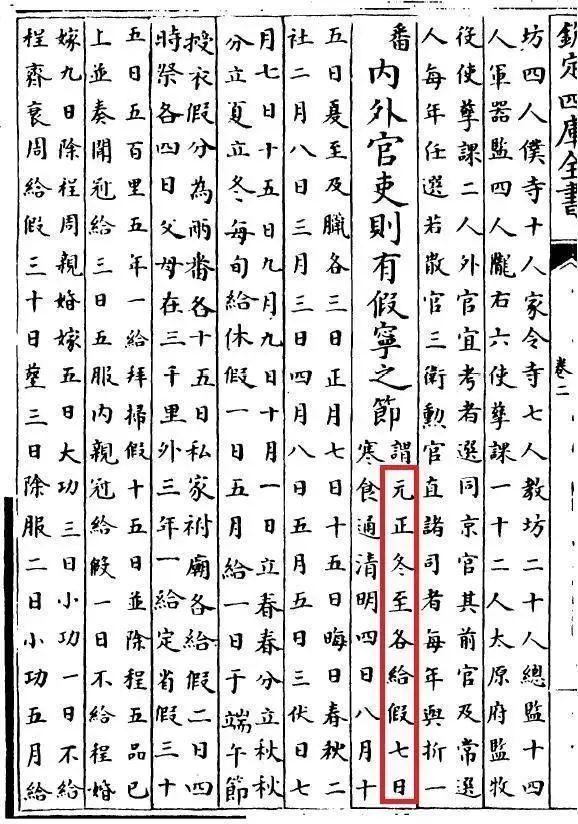 欽定四庫全書
卷二
坊四人僕寺十人家令寺七人教坊二十人總監十四
人軍器監四人隴右六使孳課一十二人太原府監牧
役使孳課二人外官宜考者選同京官其前官及常選
人每年任選若散官三衛勳官直諸司者每年與折一
番
內外官吏則有假寧之節
謂元正冬至各給假七日
寒食通清明四日八月十
五日夏至及臘各三日正月七日十五日晦日春秋二
社二月八日三月三日四月八日五月五日三伏日七
月七日十五日九月九日十月一日立春春分立秋秋
分立夏立冬每旬給休假一日五月給一日于端午節
授衣假分為兩番各十五日私家祔廟各給假二日四
時祭各四日父母在三千里外三年一給定省假三十
五日五百里五年一給拜掃假十五日並除程五品已
上並奏聞冠給三日五服內親冠給假一日不給程婚
嫁九日除程周親婚嫁五日大功三日小功一日不給
程齊衰周給假三十日塟三日除服二日小功五月給